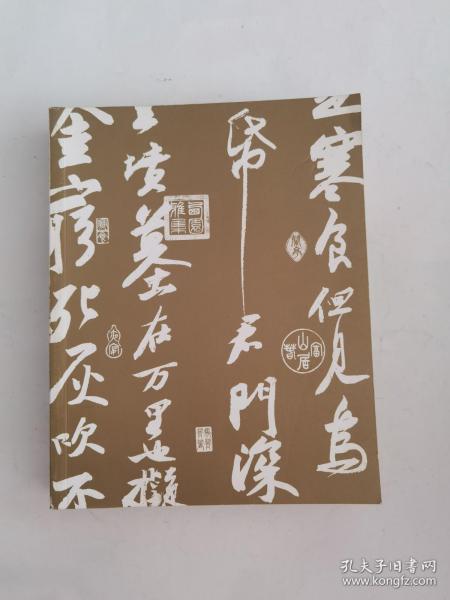 寒食但見烏
帋君門深
墳墓在万里也擬
窮死灰吹不
西園雅集
富春山居
孔夫子旧书网
www.kongfz.com